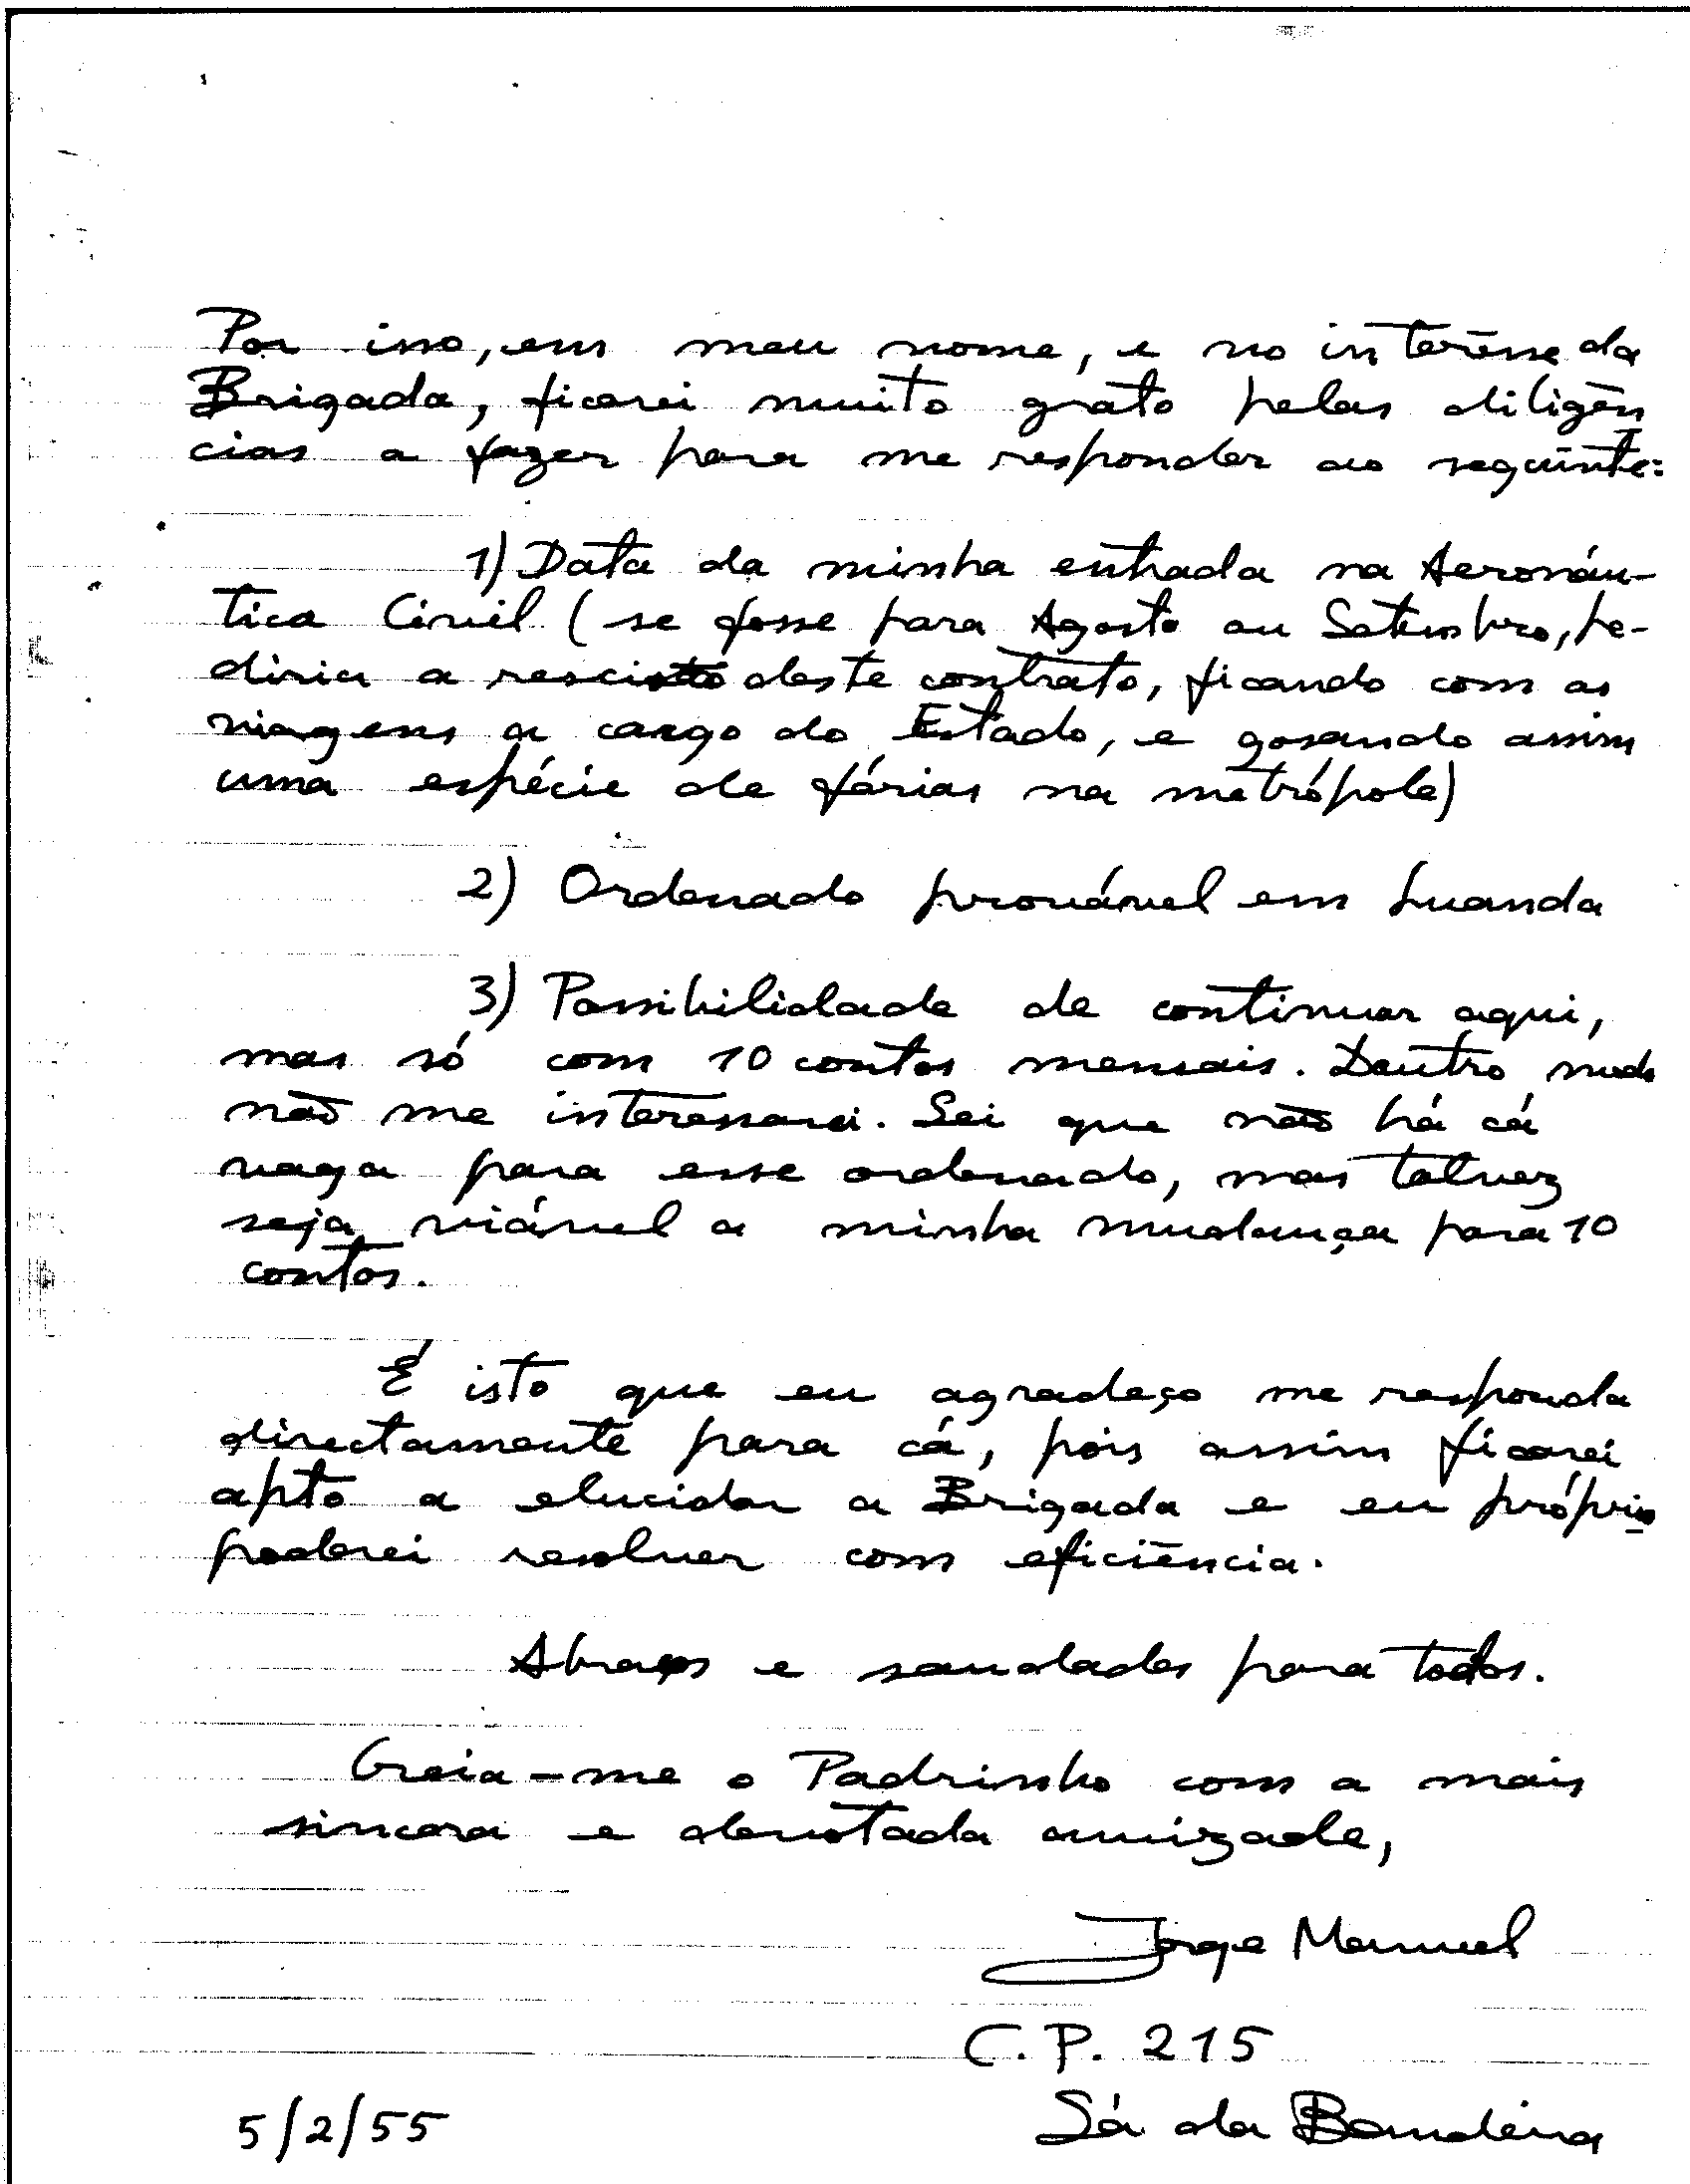 Por isso, em meu nome, e no interêsse da
Brigada, ficarei muito grato pelas diligên
cias a fazer para me responder ao seguinte:
1) Data da minha entrada na Aeronáu-
tica Civil (se fosse para Agosto ou Setembro, pe-
diria a rescisão deste contrato, ficando com as
viagens a cargo do Estado, e gosando assim
uma espécie de férias na metrópole)
2) Ordenado provável em Luanda
3) Possibilidade de continuar aqui,
mas só com 10 contos mensais. Dentro modo
não me interessarei. Sei que não há cá
vaga para esse ordenado, mas talvez
seja viável a minha mudança para 10
contos.
É isto que eu agradeço me responda
directamente para cá, pois assim ficarei
apto a elucidar a Brigada e eu próprio
poderei resolver com eficiência.
Abraços e saudades para todos.
Creia-me o Padrinho com a mais
sincera e devotada amizade,
Jorge Manuel
C.P. 215
5/2/55 Sá da Bandeira